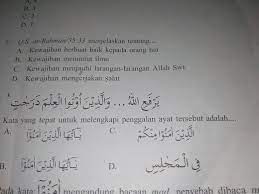 A. 1
B. 3
C. 5
D. 7
Q.S. ar-Rahman/55:33 menjelaskan tentang....
A. Kewajiban berbuat baik kepada orang tua
B. Kewajiban menuntut ilmu
C. Kewajiban menjauhi larangan-larangan Allah Swt.
D. Kewajiban mengerjakan salat
يَرْفَعِ اللّٰهُ ... وَالَّذِيْنَ اُوْتُوا الْعِلْمَ دَرَجٰتٍ
Kata yang tepat untuk melengkapi penggalan ayat tersebut adalah....
A. الَّذِيْنَ اٰمَنُوْا مِنْكُمْ
C. يٰٓاَيُّهَا الَّذِيْنَ اٰمَنُوْا
B. يٰٓاَيُّهَا الَّذِيْنَ اٰمَنُوْٓا
D. فِى الْمَجٰلِسِ
Pada kata اٰمَنُوْا mengandung bacaan mad, penyebab dibaca m